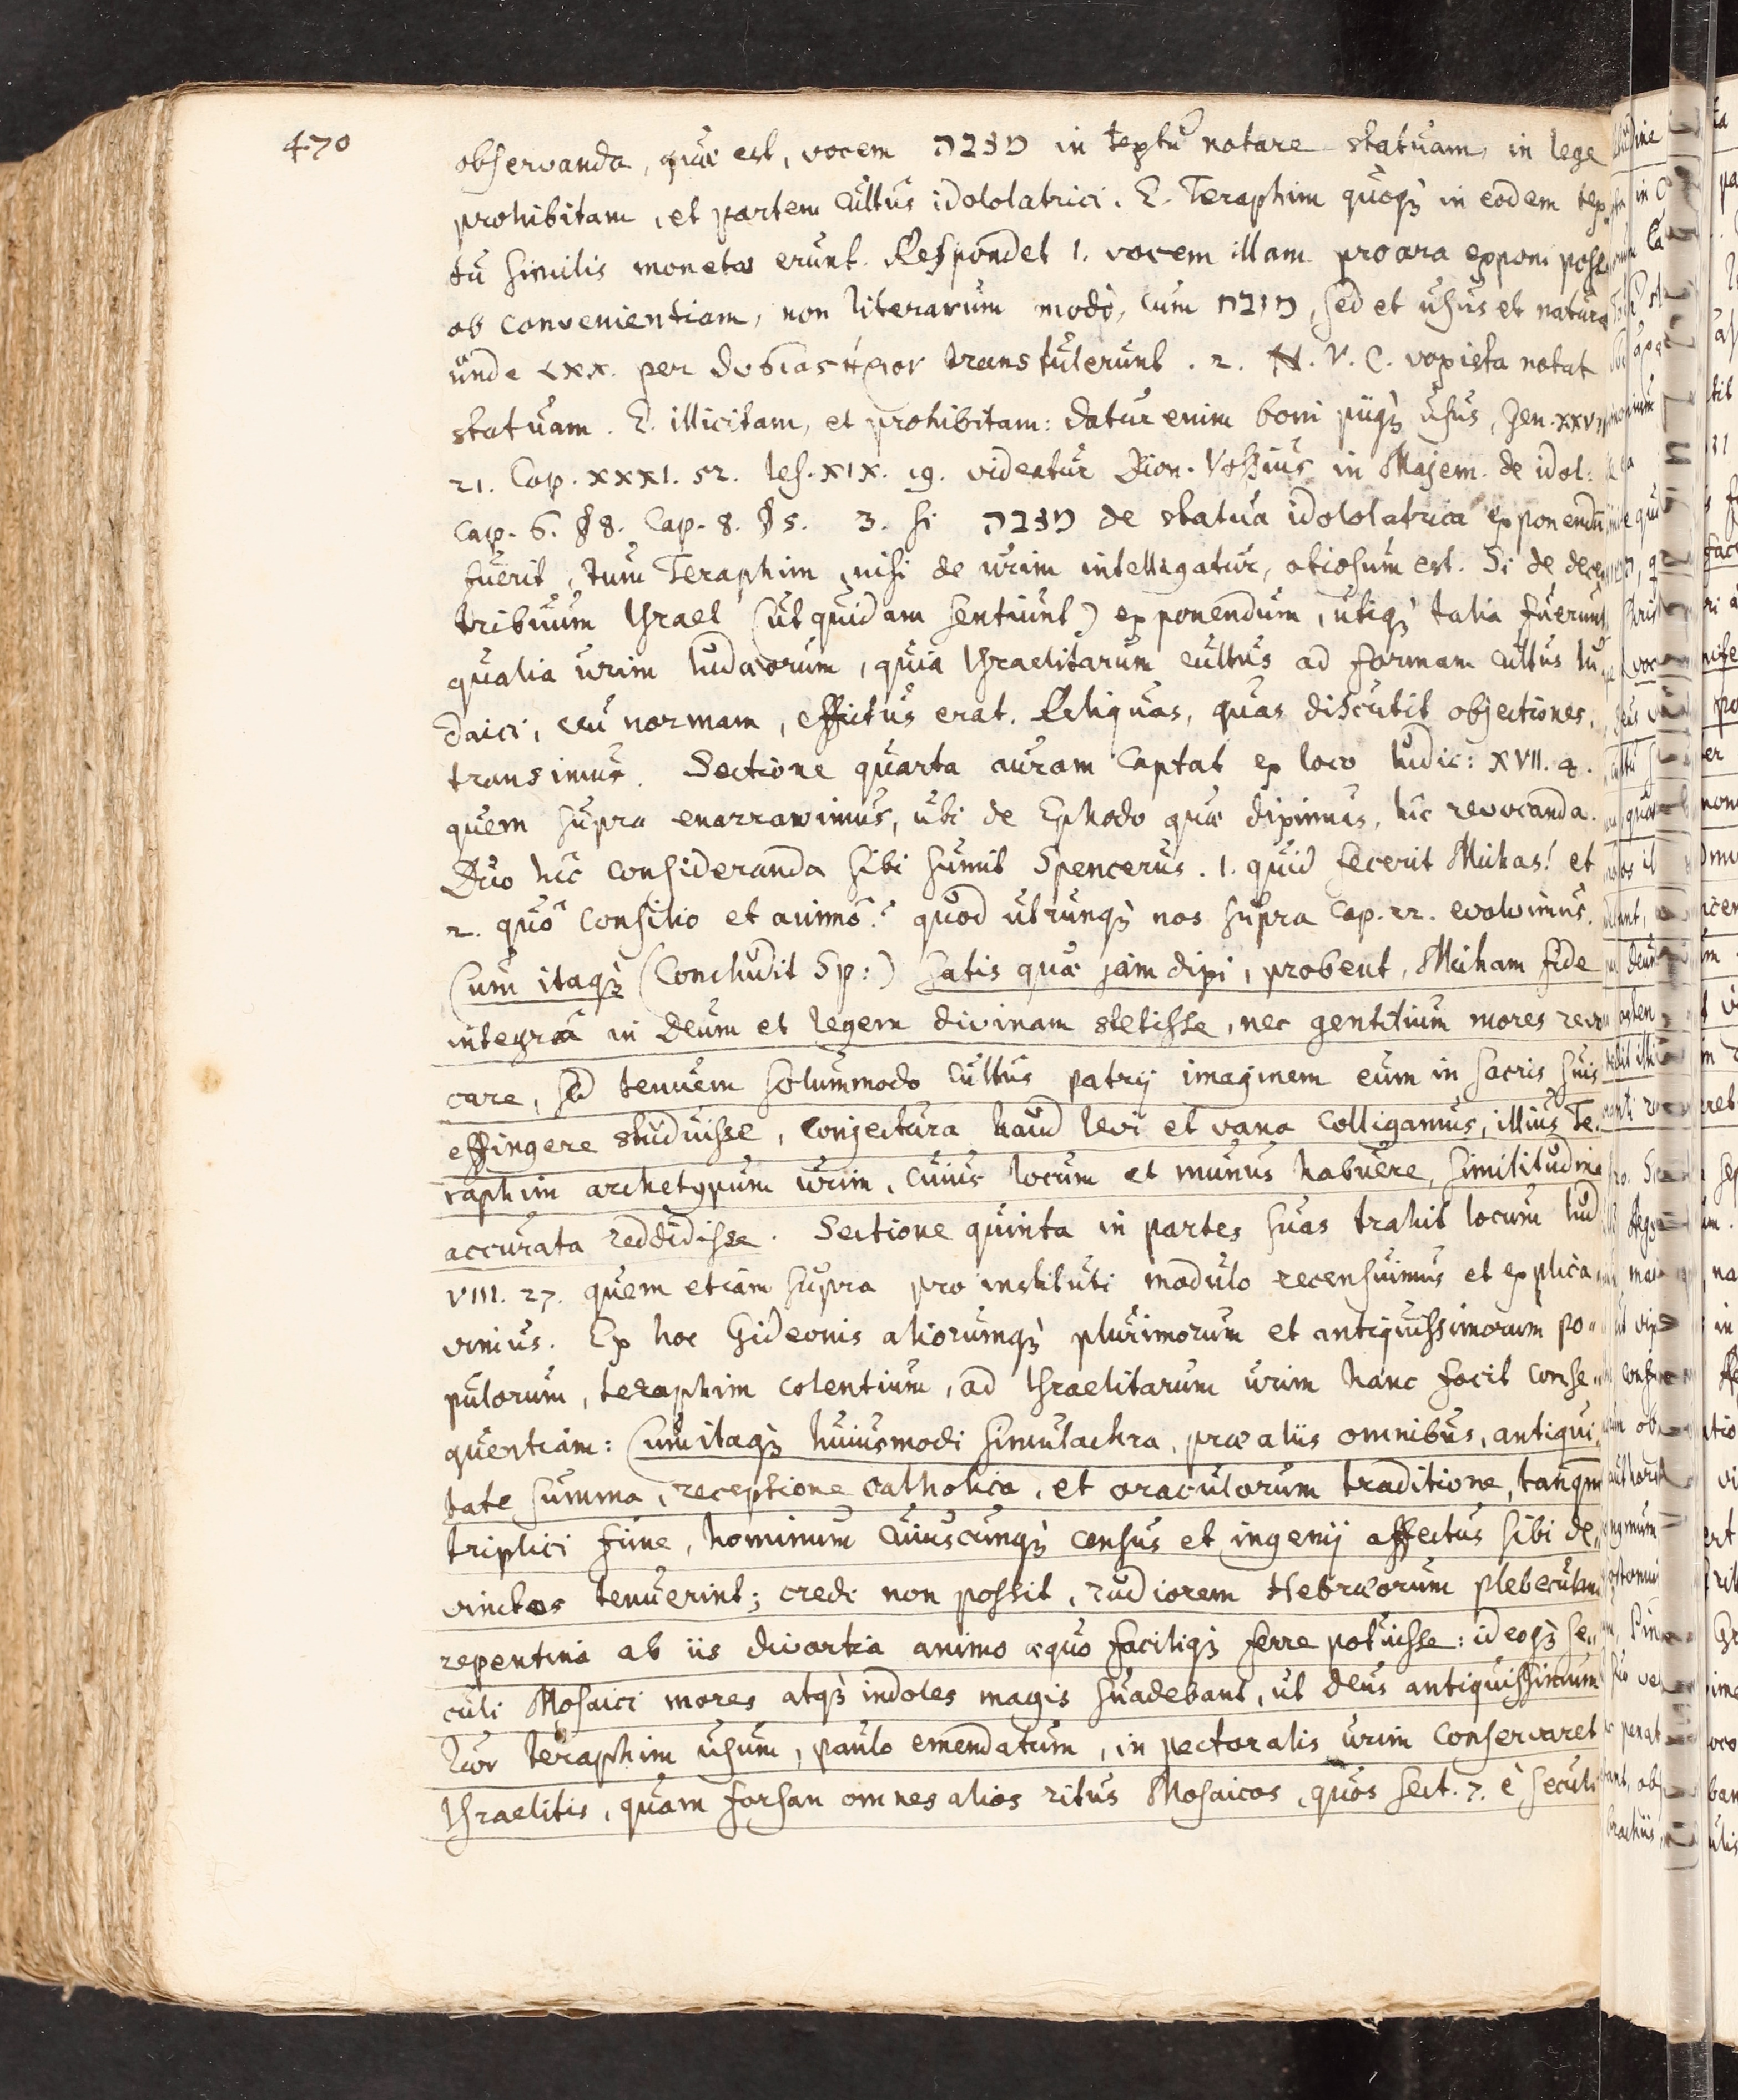 470
observanda, quæ est, vocem מצבה in textu notare statuam, in lege
prohibitam, et partem cultus idololatrici. E. Teraphim quoqȝ in eodem tex-
tu similis monetæ erunt. Respondet 1. vocem illam pro ara exponi posse
ob convenientiam, non literarum modò, cum מזבח, sed et usus et naturæ
unde LXX. per θυσιαστήριον transtulerunt. 2. N. V. C. vox ista notat
statuam. E. illicitam, et prohibitam: datur enim boni piiqȝ usus, Jen. XXVI
21. Cap. XXXI. 52. Jes. XIX. 19. videatur Dion. Vossius in Majem. de idol:
Cap. 6. § 8. Cap. 8. § 5. 3. si מצבה de statua idololatrica exponendū
fuerit, tum Teraphim, nisi de urim intelligatur, otiosum est. Si de decem
tribuum Israel (ut quidam sentiunt) exponendum, utiqȝ talia fuerunt
qualia urim Iudæorum, quia Israelitarum cultus ad formam cultus Iu
daici, ceu normam, effictus erat. Reliquas, quas discutit objectiones,
transimus. Sectione quarta auram captat ex loco Iudic: XVII.
quem supra enarravimus, ubi de Ephodo quæ diximus, hîc revocanda.
Duo hîc consideranda sibi sumit Spencerus. 1. quid fecerit Michas! et
2. quô consilio et animô? quod utrunqȝ nos supra Cap. 22. evolvimus.
Cum itaqȝ (Concludit Sp:) satis quæ jam dixi, probent, Micham fide
integrâ in Deum et legem divinam stetisse, nec gentilium mores revo
care, sed tenuem solummodo cultus patrij imaginem eum in sacris suis
effingere studuisse, conjectura haud levi et vana colligamus, illius Te-
raphim archetypum urim, cuius locum et munus habuêre, similitudine
accurata reddidisse. Sectione quinta in partes suas trahit locum Iud
VIII. 27. quem etiam supra pro instituti modulo recensuimus et explica
vimus. Ex hoc Gideonis aliorumqȝ plurimorum et antiquissimorum po-
pulorum, teraphim colentium, ad Israelitarum urim hanc facit conse-
quentiam: Cum itaqȝ huiusmodi simulachra, præ aliis omnibus, antiqui-
tate summa, receptione catholica, et oraculorum traditione, tanqm
triplici fune, hominum cuiuscunqȝ census et ingenij affectus sibi de-
vinctos tenuerint; credi non possit, rudiorem Hebræorum plebeculam
repentina ab iis divortia animo æquo faciliqȝ ferre potuisse: ideoqȝ se-
culi Mosaici mores atqȝ indoles magis suadebant, ut Deus antiquissimum
hunc teraphim usum, paulo emendatum, in pectoralis urim conservaret
Israelitis, quam forsan omnes alios ritus Mosaicos, quos sect. 7. è seculi